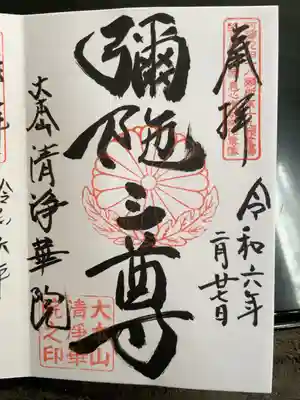 奉拝
令和六年
二月廿七日
彌陀三尊
大本山
清浄華院
大本山
清浄華
院之印